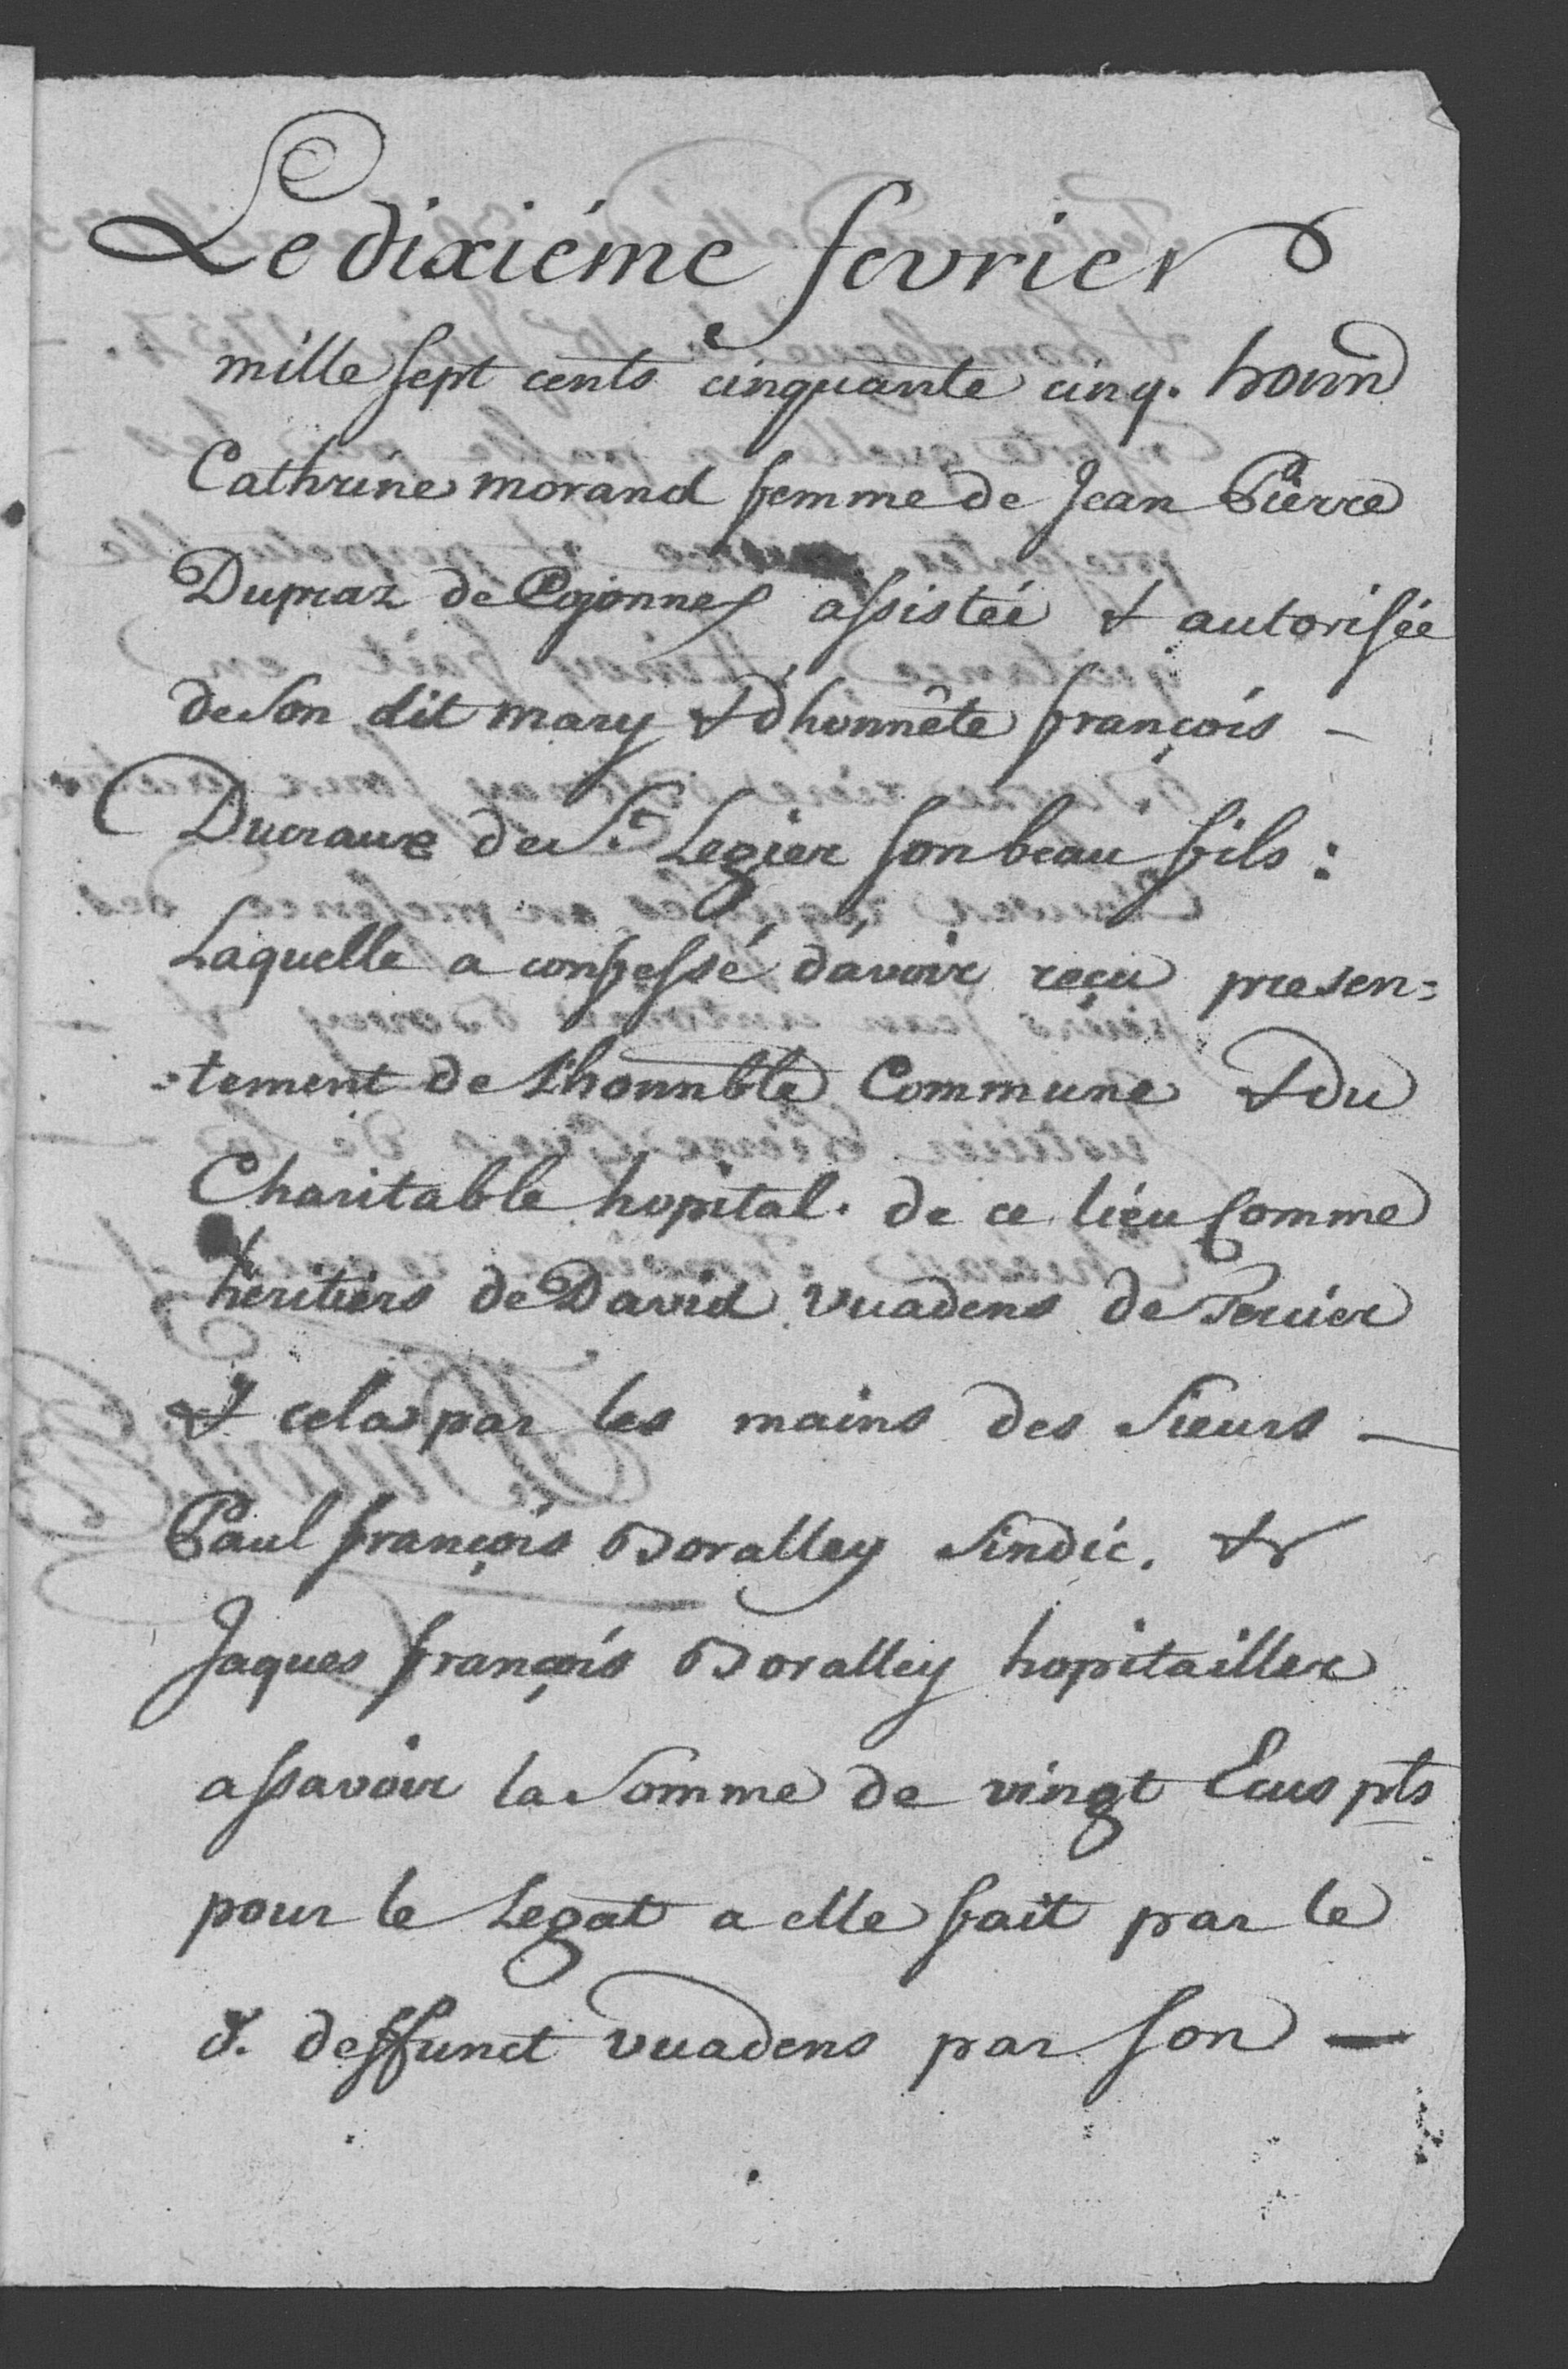 Le dixiéme fevrier
mille sept cents cinquante cinq. honn
Cathrine morand femme de Jean Pierre
Dupraz de Cojonnex assistée & autorisée
de son dit mary & d'honnête françois -
Ducraux de St Legier son beau fils :
Laquelle a confessé d'avoir reçu presen=
=tement de L'honnble Commune & du
Charitable hopital. de ce lieu Comme
heritiers de David vuadens de Tercier
& cela par les mains des Sieurs -
Paul françois Boralley Sindic. &
Jaques françois Boralley hopitailler
assavoir la Somme de vingt Ecus pts
pour le Legat a elle fait par le
d. deffunct vuadens par son -